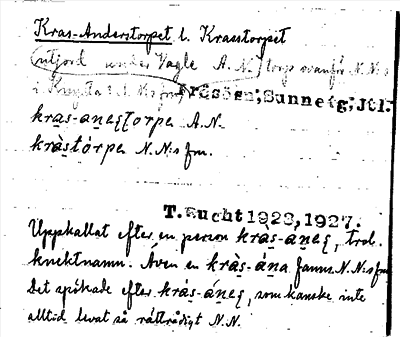 Kras-Anderstorpet l. Krastorpet
(utjord under Vagle A.N.) torp ovanför N.N:s
i Knytta t.d. N:s fm
Frösön; Sunne tg; Jtl.
kras-aneʂtorpe A.N.
kràstórpe N.N:s fm.
T. Bucht 1923, 1927.
Uppkallat efter en person kràs-àneʂ, trol.
knektnamn. Även en kràs-ána fanns. N.N:s fm
Det spökade efter kràs-áneʂ, som kanske inte
alltid levat så rättrådigt N.N.